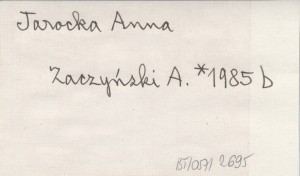 Jarocka Anna
Zaczyński A. *1985 b
BT/057/ 2695